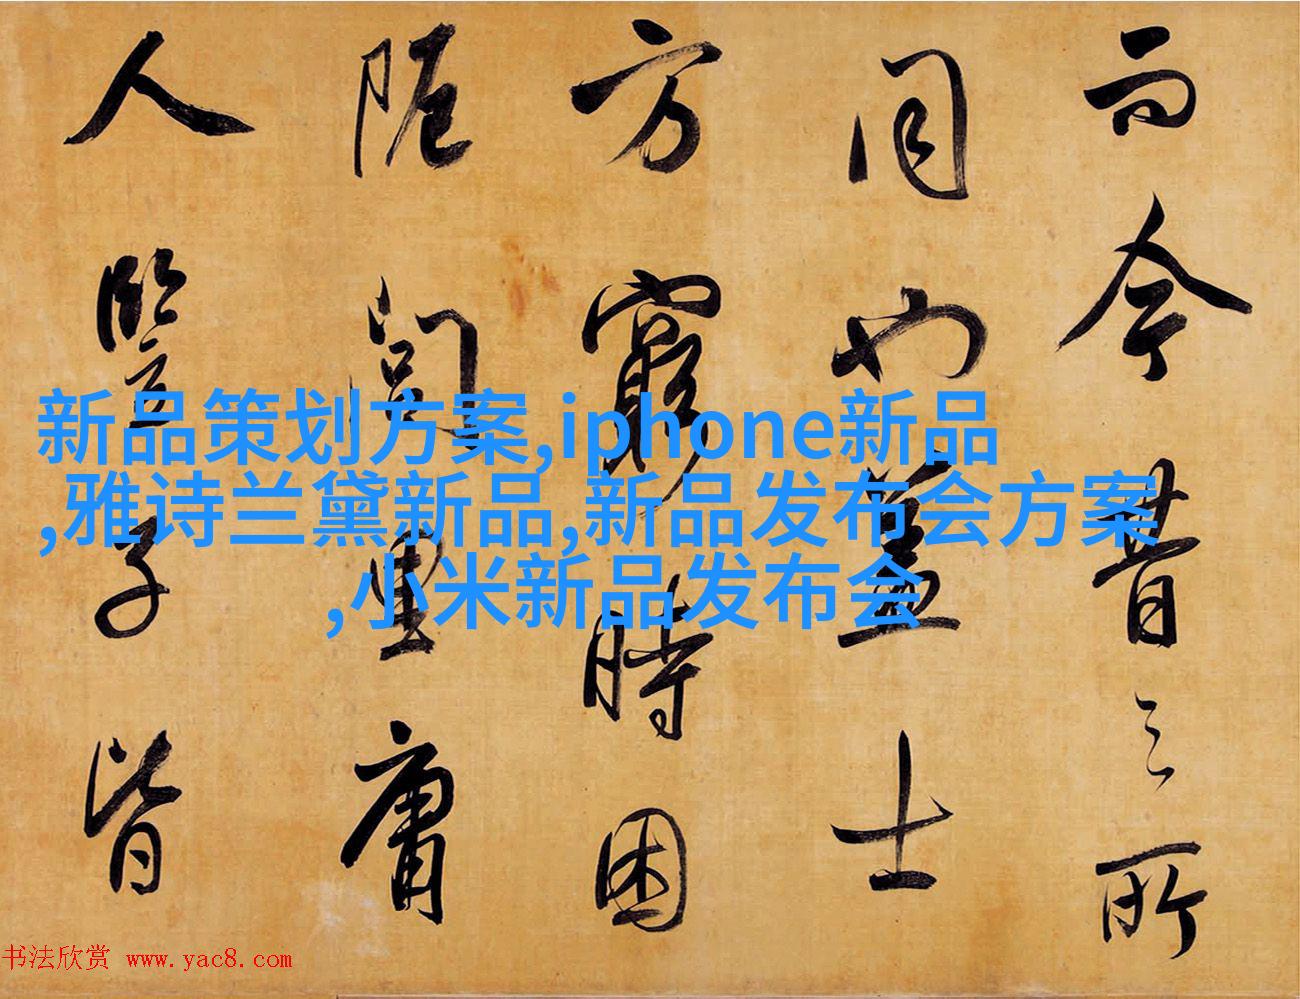 而今昔之所
同也蓋士
方窮時困
阨閭里庸
人豎子皆
新品策划方案,iphone新品
,雅诗兰黛新品,新品发布会方案
,小米新品发布会
书法欣赏 www.yac8.com